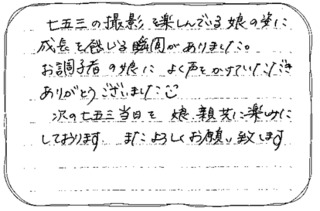 七五三の撮影を楽しんでいる娘の姿に
成長を感じる瞬間がありました。
お調子者の娘に よく声をかけていただき
ありがとうございました
次の七五三当日を 娘、親共に楽しみに
しております。またよろしくお願い致します